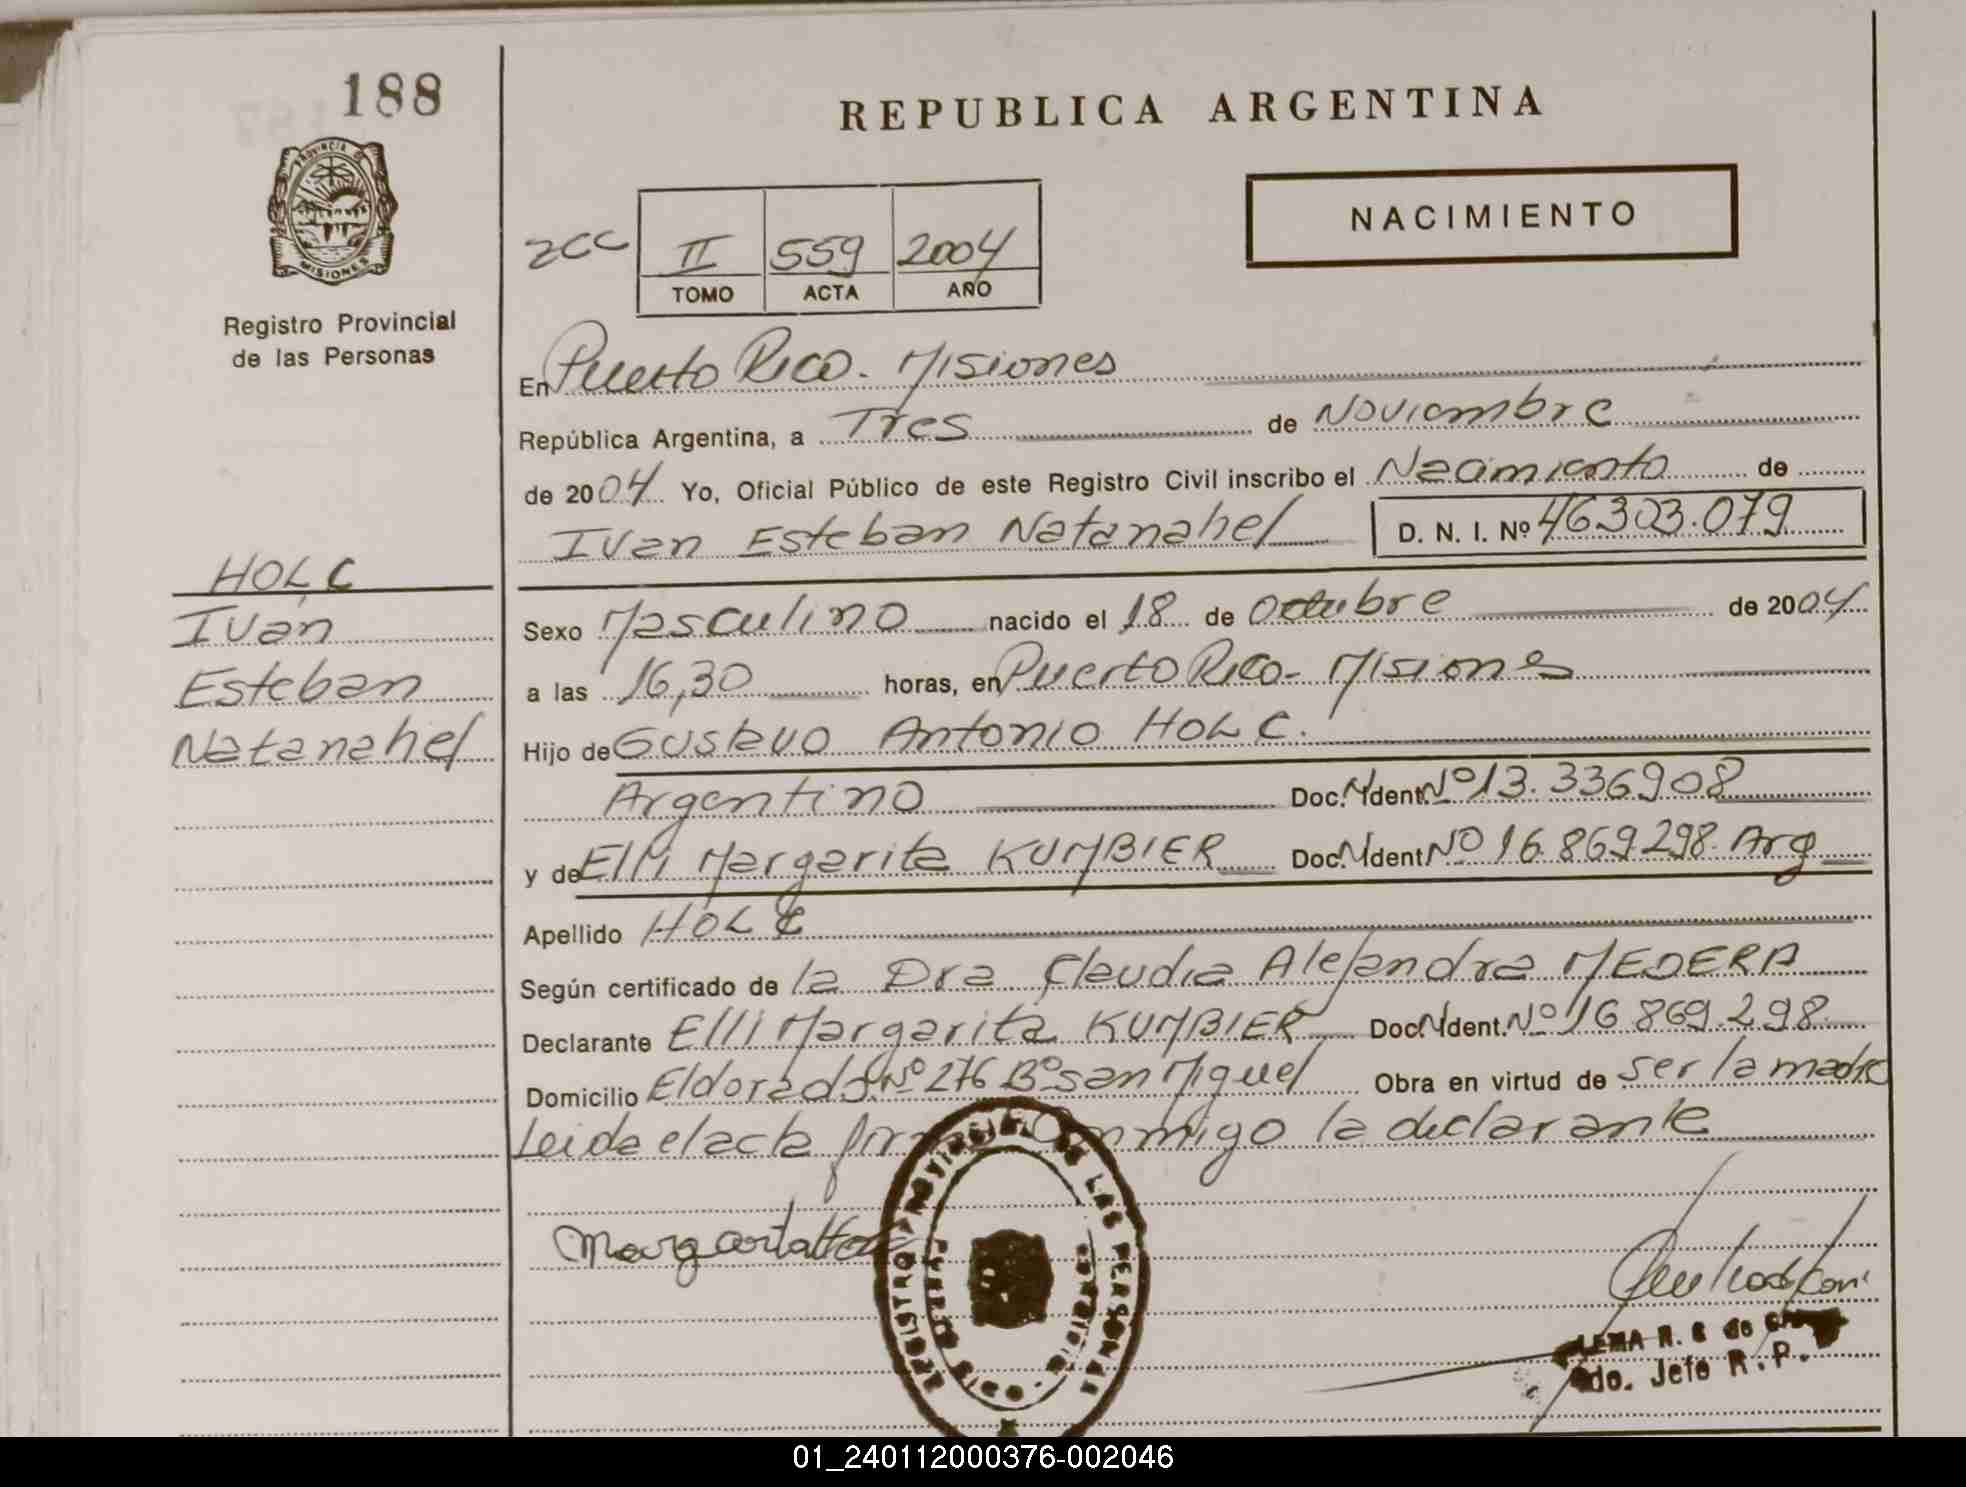 188
PROVINCIA DE
MISIONES
Registro Provincial
de las Personas
REPUBLICA ARGENTINA
NACIMIENTO
II 559 2004
TOMO ACTA AÑO
En Puerto Rico. Misiones
República Argentina, a Tres de Noviembre
de 2004 Yo, Oficial Público de este Registro Civil inscribo el Nacimiento de
Ivan Esteban Natanahel D. N. I. Nº 46303.079
HOLC
Iván
Esteban
Natanahel
Sexo Masculino nacido el 18 de Octubre de 2004
a las 16,30 horas, en Puerto Rico - Misiones
Hijo de Gustavo Antonio HOLC.
Argentino Doc. Ident. Nº 13.336908
y de Elli Margarita KUMBIER Doc. Ident. Nº 16.869.298. Arg
Apellido HOLC
Según certificado de la Dra Claudia Alejandra MEDERA
Declarante Elli Margarita KUMBIER Doc. Ident. Nº 16869.298.
Domicilio Eldorado Nº 276 Bº San Miguel Obra en virtud de ser la madre
Leida el acta firma conmigo la declarante
REGISTRO PROVINCIAL DE LAS PERSONAS
PUERTO RICO
Jefe R. P.
01_240112000376-002046